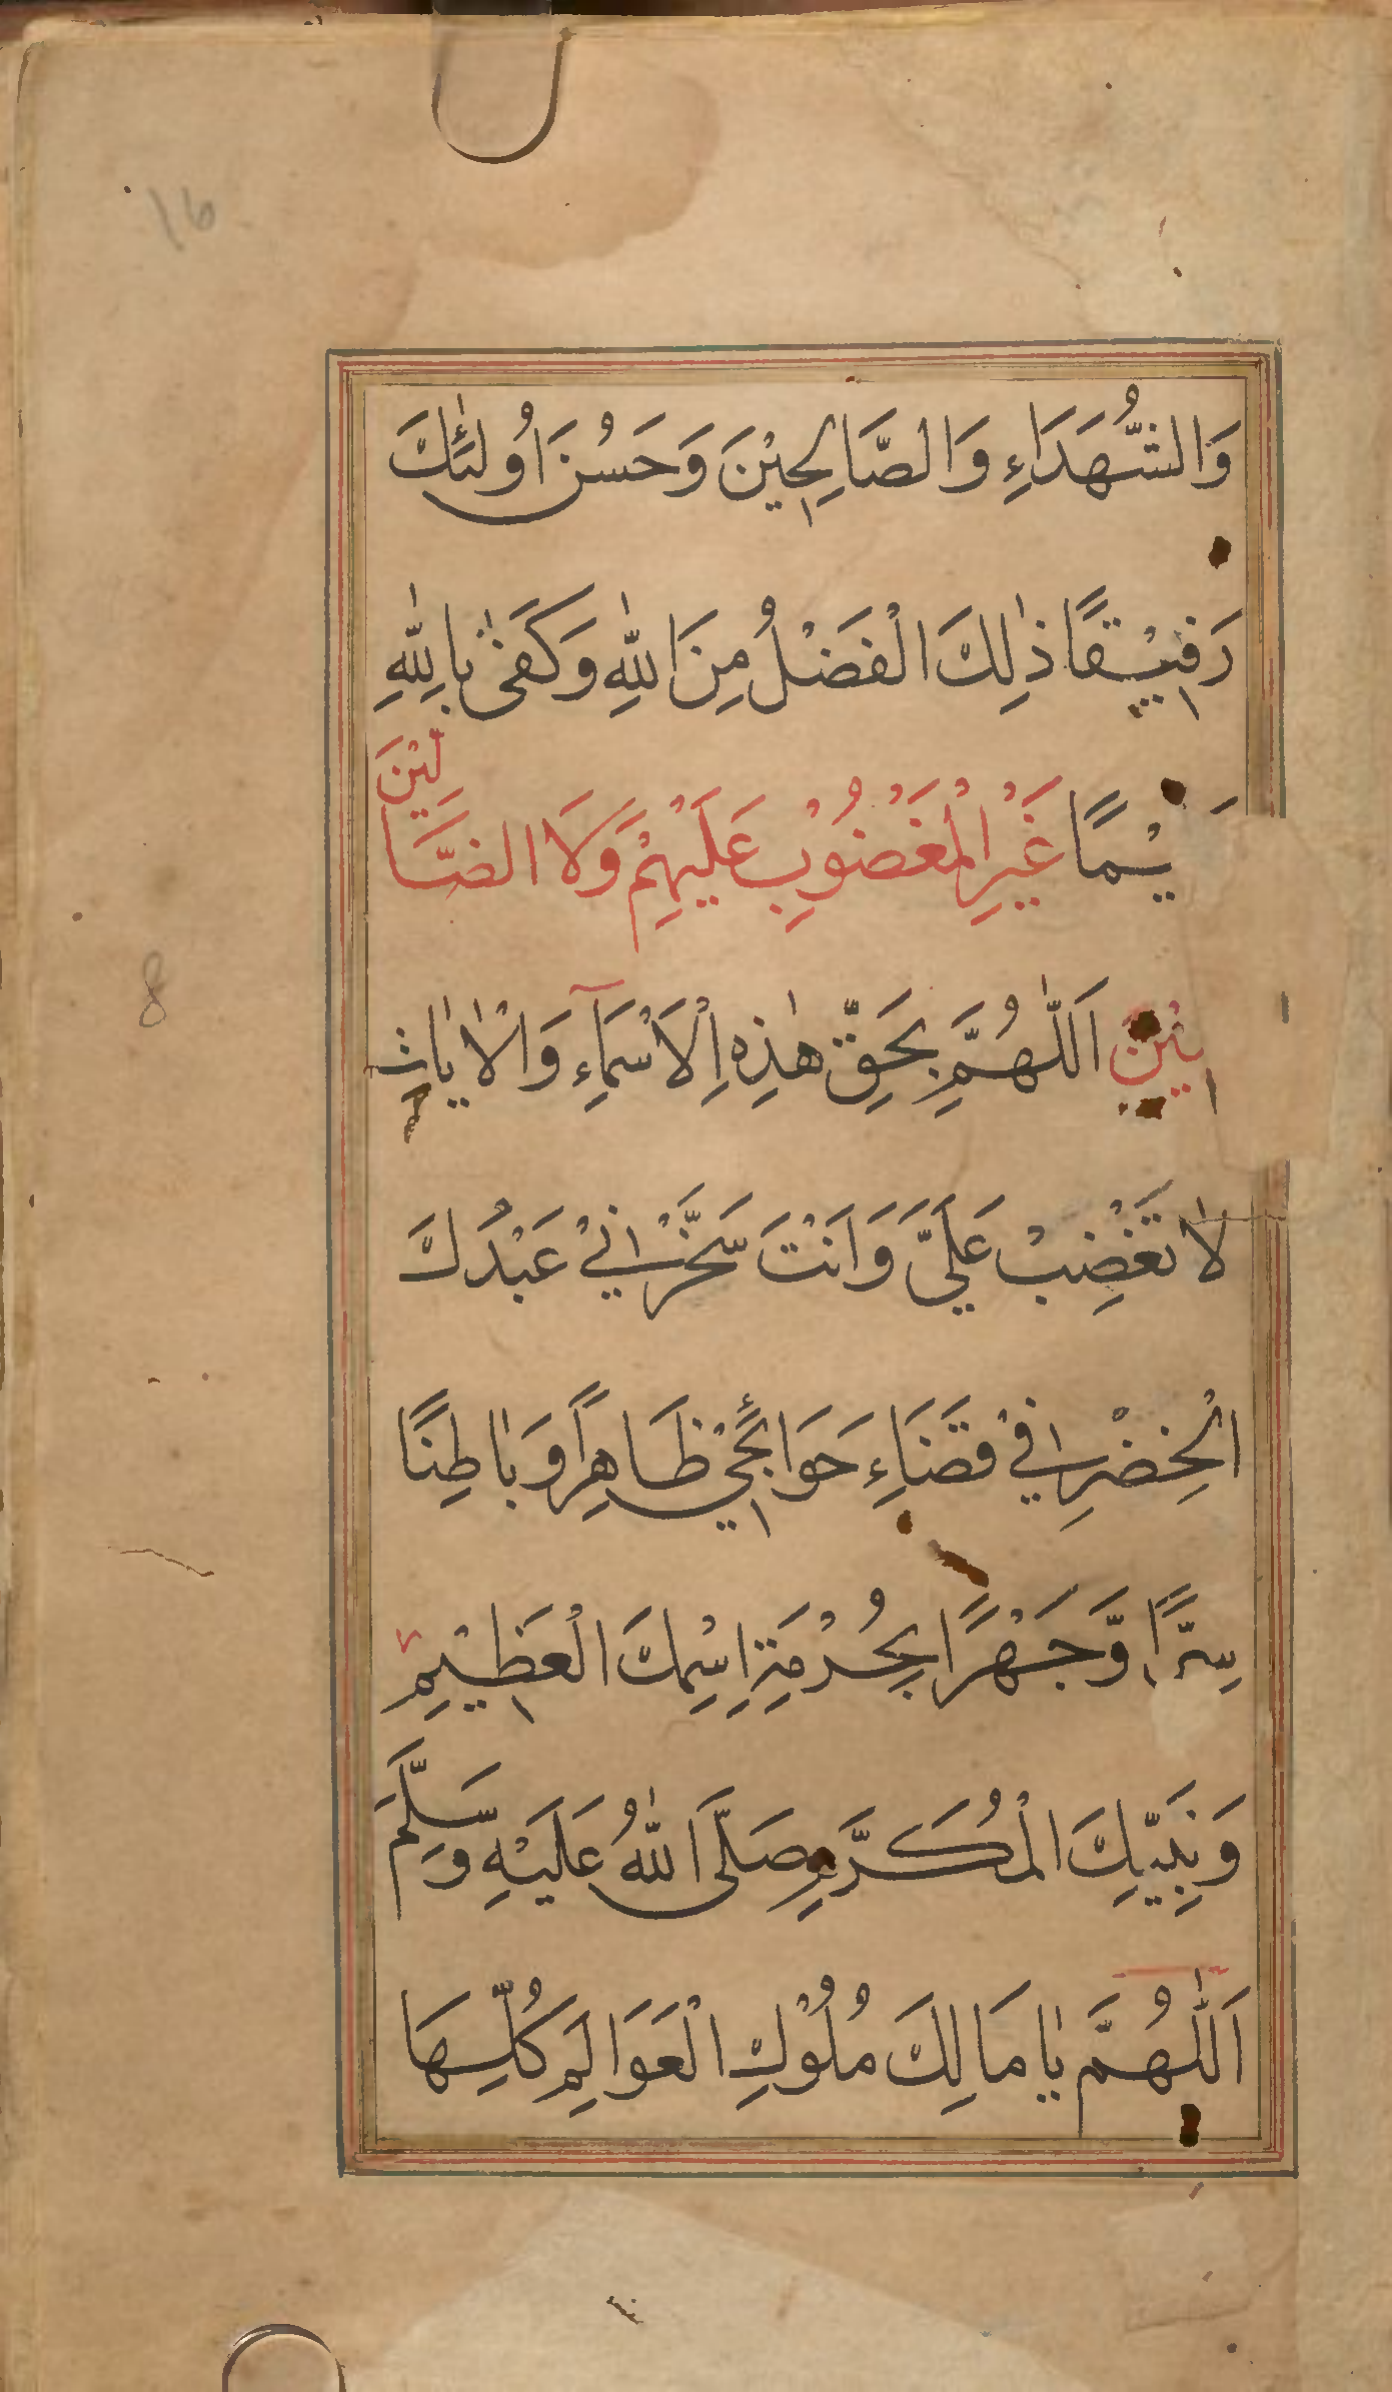 16
وَالشُّهَدَاءِ وَالصَّالِحِيْنَ وَحَسُنَ اُولٰئِكَ
رَفِيْقًا ذٰلِكَ الْفَضْلُ مِنَ اللّٰهِ وَكَفٰى بِاللّٰهِ
يْمًا غَيْرِ الْمَغْضُوْبِ عَلَيْهِمْ وَلَا الضَّالِّيْنَ
يْنَ اَللّٰهُمَّ بِحَقِّ هٰذِهِ الْاَسْمَآءِ وَالْاٰيٰاتِ
لٰا تَغْضِبْ عَلَيَّ وَاَنْتَ سَخَّرْ لِيْ عَبْدُكَ
الْخِضْرِ فِيْ قَضَاءِ حَوَائِجِيْ ظَاهِرًا وَبٰاطِنًا
سِرًّا وَّجَهْرًا بِحُرْمَةِ اِسْمِكَ الْعَظِيْمِ
وَنَبِيِّكَ الْمُكَرَّمِ صَلَّى اللّٰهُ عَلَيْهِ وَسَلَّمَ
اَللّٰهُمَّ يٰا مَالِكَ مُلُوْكِ الْعَوَالِمِ كُلِّهَا
8